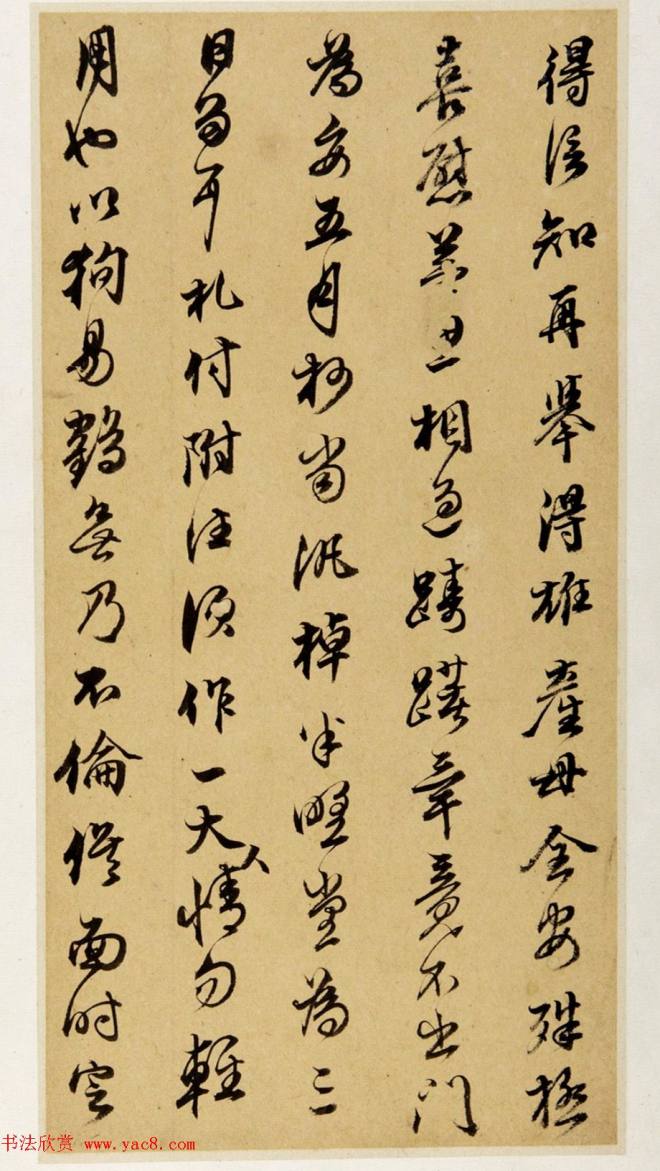 得信知再舉得雄產母全安殊極
喜慰相過躊躇竟不出門
為妥五月杪當汎棹半野堂為三
日留耳札付附往須作一大人情勿輕
用也以狗易鶴無乃不倫俟面時定
书法欣赏 www.yac8.com